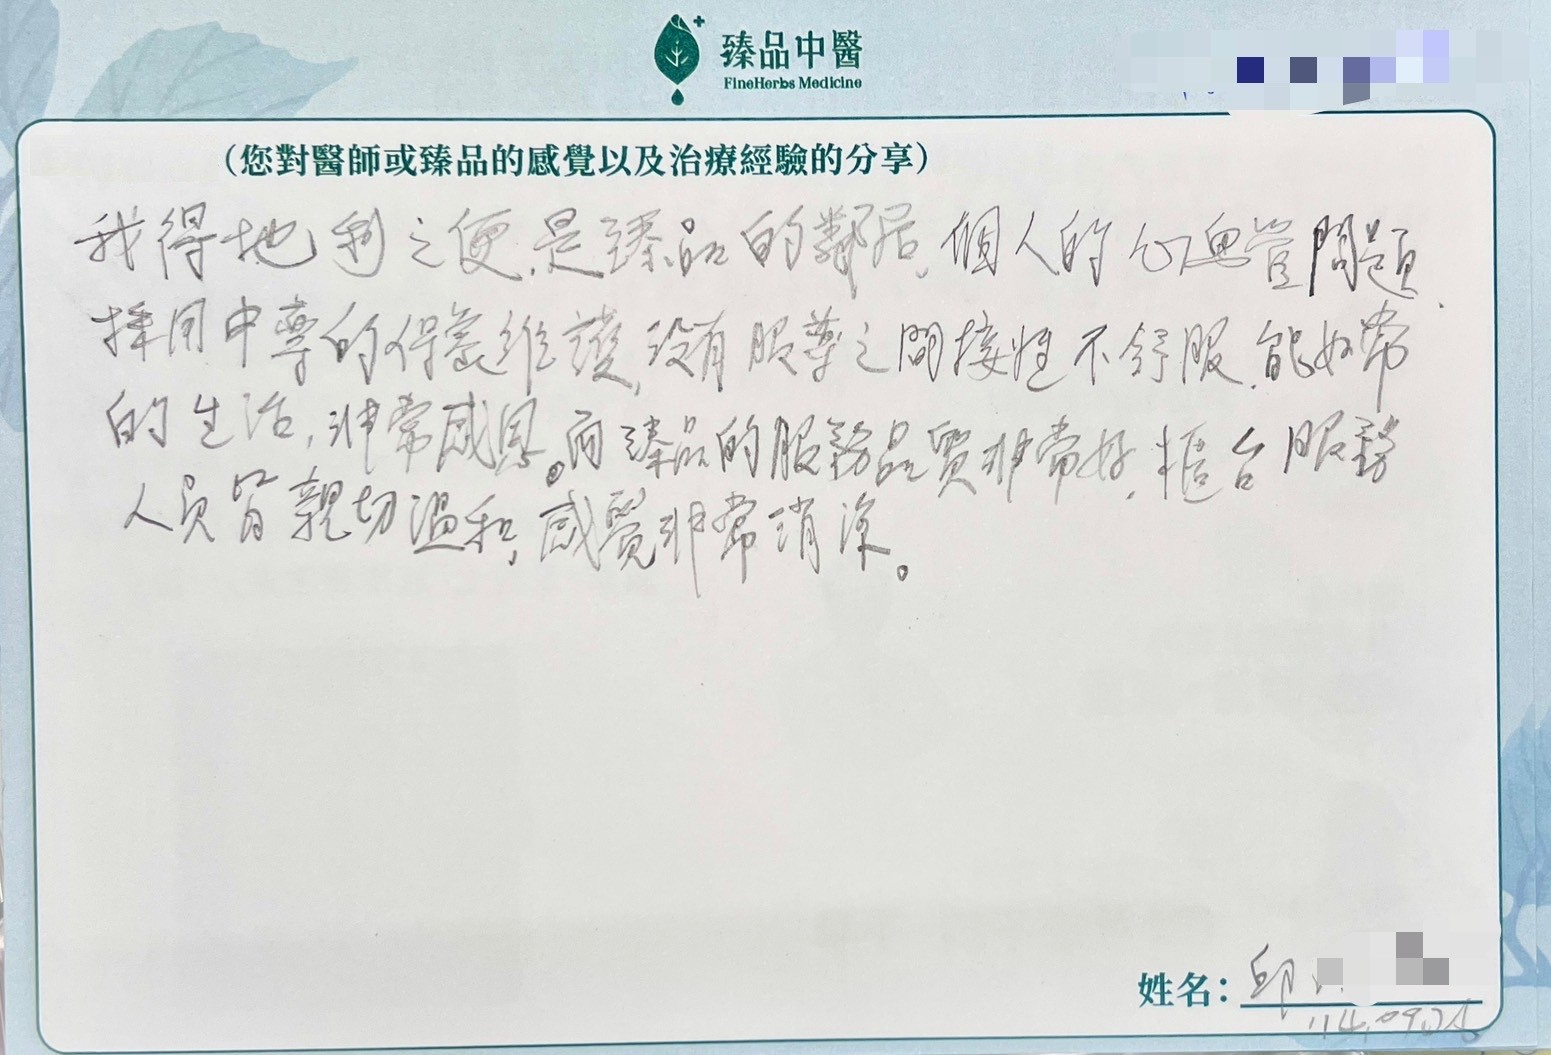 臻品中醫
FineHerbs Medicine
（您對醫師或臻品的感覺以及治療經驗的分享）
我得地利之便，是臻品的鄰居，個人的心血管問題，
擇用中藥的保養維護，沒有服藥之間接性不舒服，能如常
的生活，非常感恩。而臻品的服務品質非常好，櫃台服務
人員皆親切溫和，感覺非常清涼。
姓名：邱
114.09.05